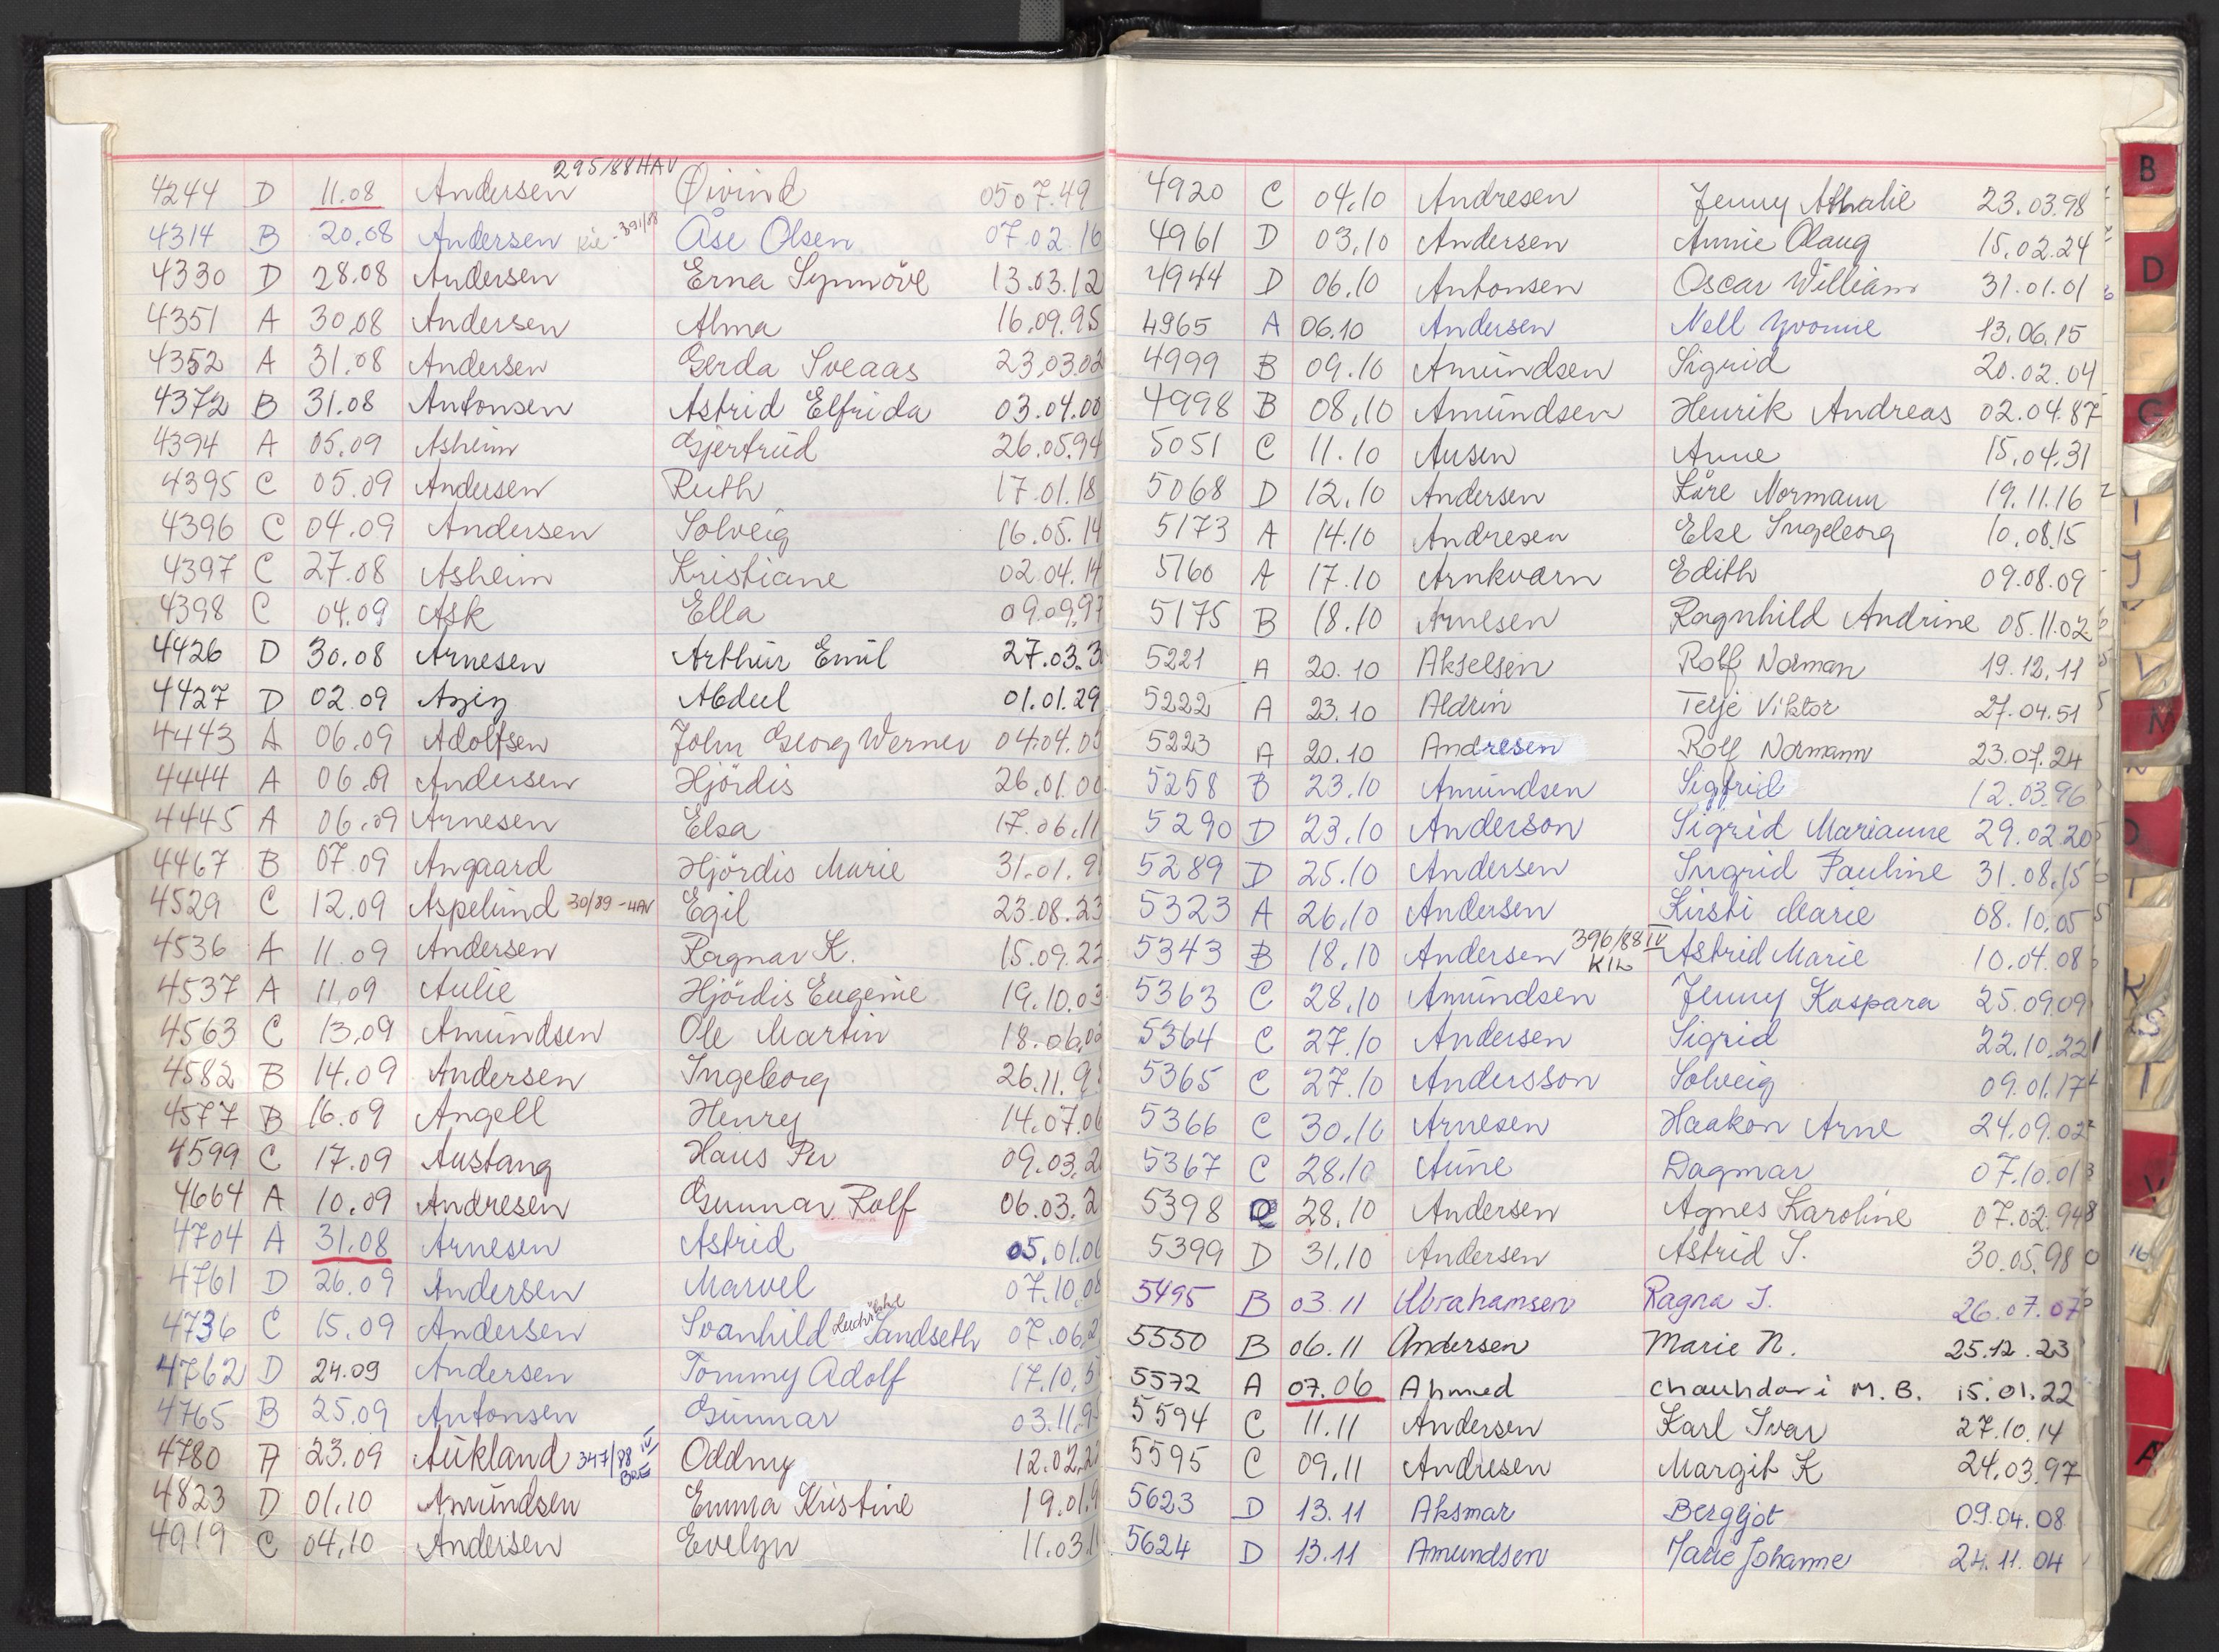 295/88 HAV
4244 D 11.08 Andersen Øivind 0507.49
4314 B 20.08 Andersen Kie-391/88 Åse Olsen 07.02.16
4330 D 28.08 Andersen Erna Synnöve 13.03.12
4351 A 30.08 Andersen Alma 16.09.95
4352 A 31.08 Andersen Gerda Sveaas 23.03.02
4372 B 31.08 Antonsen Astrid Elfrida 03.04.00
4394 A 05.09 Asheim Gjertrud 26.05.94
4395 C 05.09 Andersen Ruth 17.01.18
4396 C 04.09 Andersen Solveig 16.05.14
4397 C 27.08 Asheim Kristiane 02.04.14
4398 C 04.09 Ask Ella 09.09.97
4426 D 30.08 Arnesen Arthur Emil 27.03.3
4427 D 02.09 Aziz Abdul 01.01.29
4443 A 06.09 Adolfsen John Georg Werner 04.04.03
4444 A 06.09 Andersen Hjördis 26.01.00
4445 A 06.09 Arnesen Elsa 17.06.11
4467 B 07.09 Angaard Hjördis Marie 31.01.9
4529 C 12.09 Aspelund 30/89-HAV Egil 23.08.23
4536 A 11.09 Andersen Ragnar K. 15.09.22
4537 A 11.09 Aulie Hjördis Eugenie 19.10.03
4563 C 13.09 Amundsen Ole Martin 18.06.02
4582 B 14.09 Andersen Ingeborg 26.11.9
4577 B 16.09 Angell Henry 14.07.06
4599 C 17.09 Austang Hans Per 09.03.2
4664 A 10.09 Andresen Gunnar Rolf 06.03.2
4704 A 31.08 Arnesen Astrid 05.01.06
4761 D 26.09 Andersen Marvel 07.10.08
4736 C 15.09 Andersen Svanhild Sandseth 07.06.2
4762 D 24.09 Andersen Tommy Adolf 17.10.5
4765 B 25.09 Antonsen Gunnar 03.11.9
4780 A 23.09 Aukland 347/88 IV Oddny 12.02.22
4823 D 01.10 Amundsen Emma Kristine 19.01.9
4919 C 04.10 Andersen Evelyn 11.03.1
4920 C 04.10 Andresen Jenny Athalie 23.03.98
4961 D 03.10 Andersen Annie Olaug 15.02.24
4944 D 06.10 Antonsen Oscar William 31.01.01
4965 A 06.10 Andersen Nell Yvonne 13.06.15
4999 B 09.10 Amundsen Sigrid 20.02.04
4998 B 08.10 Amundsen Henrik Andreas 02.04.87
5051 C 11.10 Ausen Anne 15.04.31
5068 D 12.10 Andersen Kåre Normann 19.11.16
5173 A 14.10 Andresen Else Ingeborg 10.08.15
5160 A 17.10 Arnkværn Edith 09.08.09
5175 B 18.10 Arnesen Ragnhild Andrine 05.11.02
5221 A 20.10 Akselsen Rolf Norman 19.12.11
5222 A 23.10 Aldrin Terje Viktor 27.04.51
5223 A 20.10 Andresen Rolf Normann 23.07.24
5258 B 23.10 Amundsen Sigfrid 12.03.96
5290 D 23.10 Anderson Sigrid Marianne 29.02.20
5289 D 25.10 Andersen Ingrid Pauline 31.08.15
5323 A 26.10 Andersen Kirsti Marie 08.10.05
5343 B 18.10 Andersen 396/88 IV Astrid Marie 10.04.08
5363 C 28.10 Amundsen Jenny Kaspara 25.09.09
5364 C 27.10 Andersen Sigrid 22.10.22
5365 C 27.10 Andersson Solveig 09.01.17
5366 C 30.10 Arnesen Haakon Arne 24.09.02
5367 C 28.10 Aune Dagmar 07.10.01
5398 28.10 Andersen Agnes Karoline 07.02.94
5399 D 31.10 Andersen Astrid S. 30.05.98
5495 B 03.11 Abrahamsen Ragna J. 26.07.07
5550 B 06.11 Andersen Marie N. 25.12.23
5572 A 07.06 Ahmed Chauhdari M.B. 15.01.22
5594 C 11.11 Andersen Karl Ivar 27.10.14
5595 C 09.11 Andresen Margit K 24.03.97
5623 D 13.11 Aksmar Bergljot 09.04.08
5624 D 13.11 Amundsen Marie Johanne 24.11.04
B
D
G
I
J
V
N
O
K
S
T
V
16
A